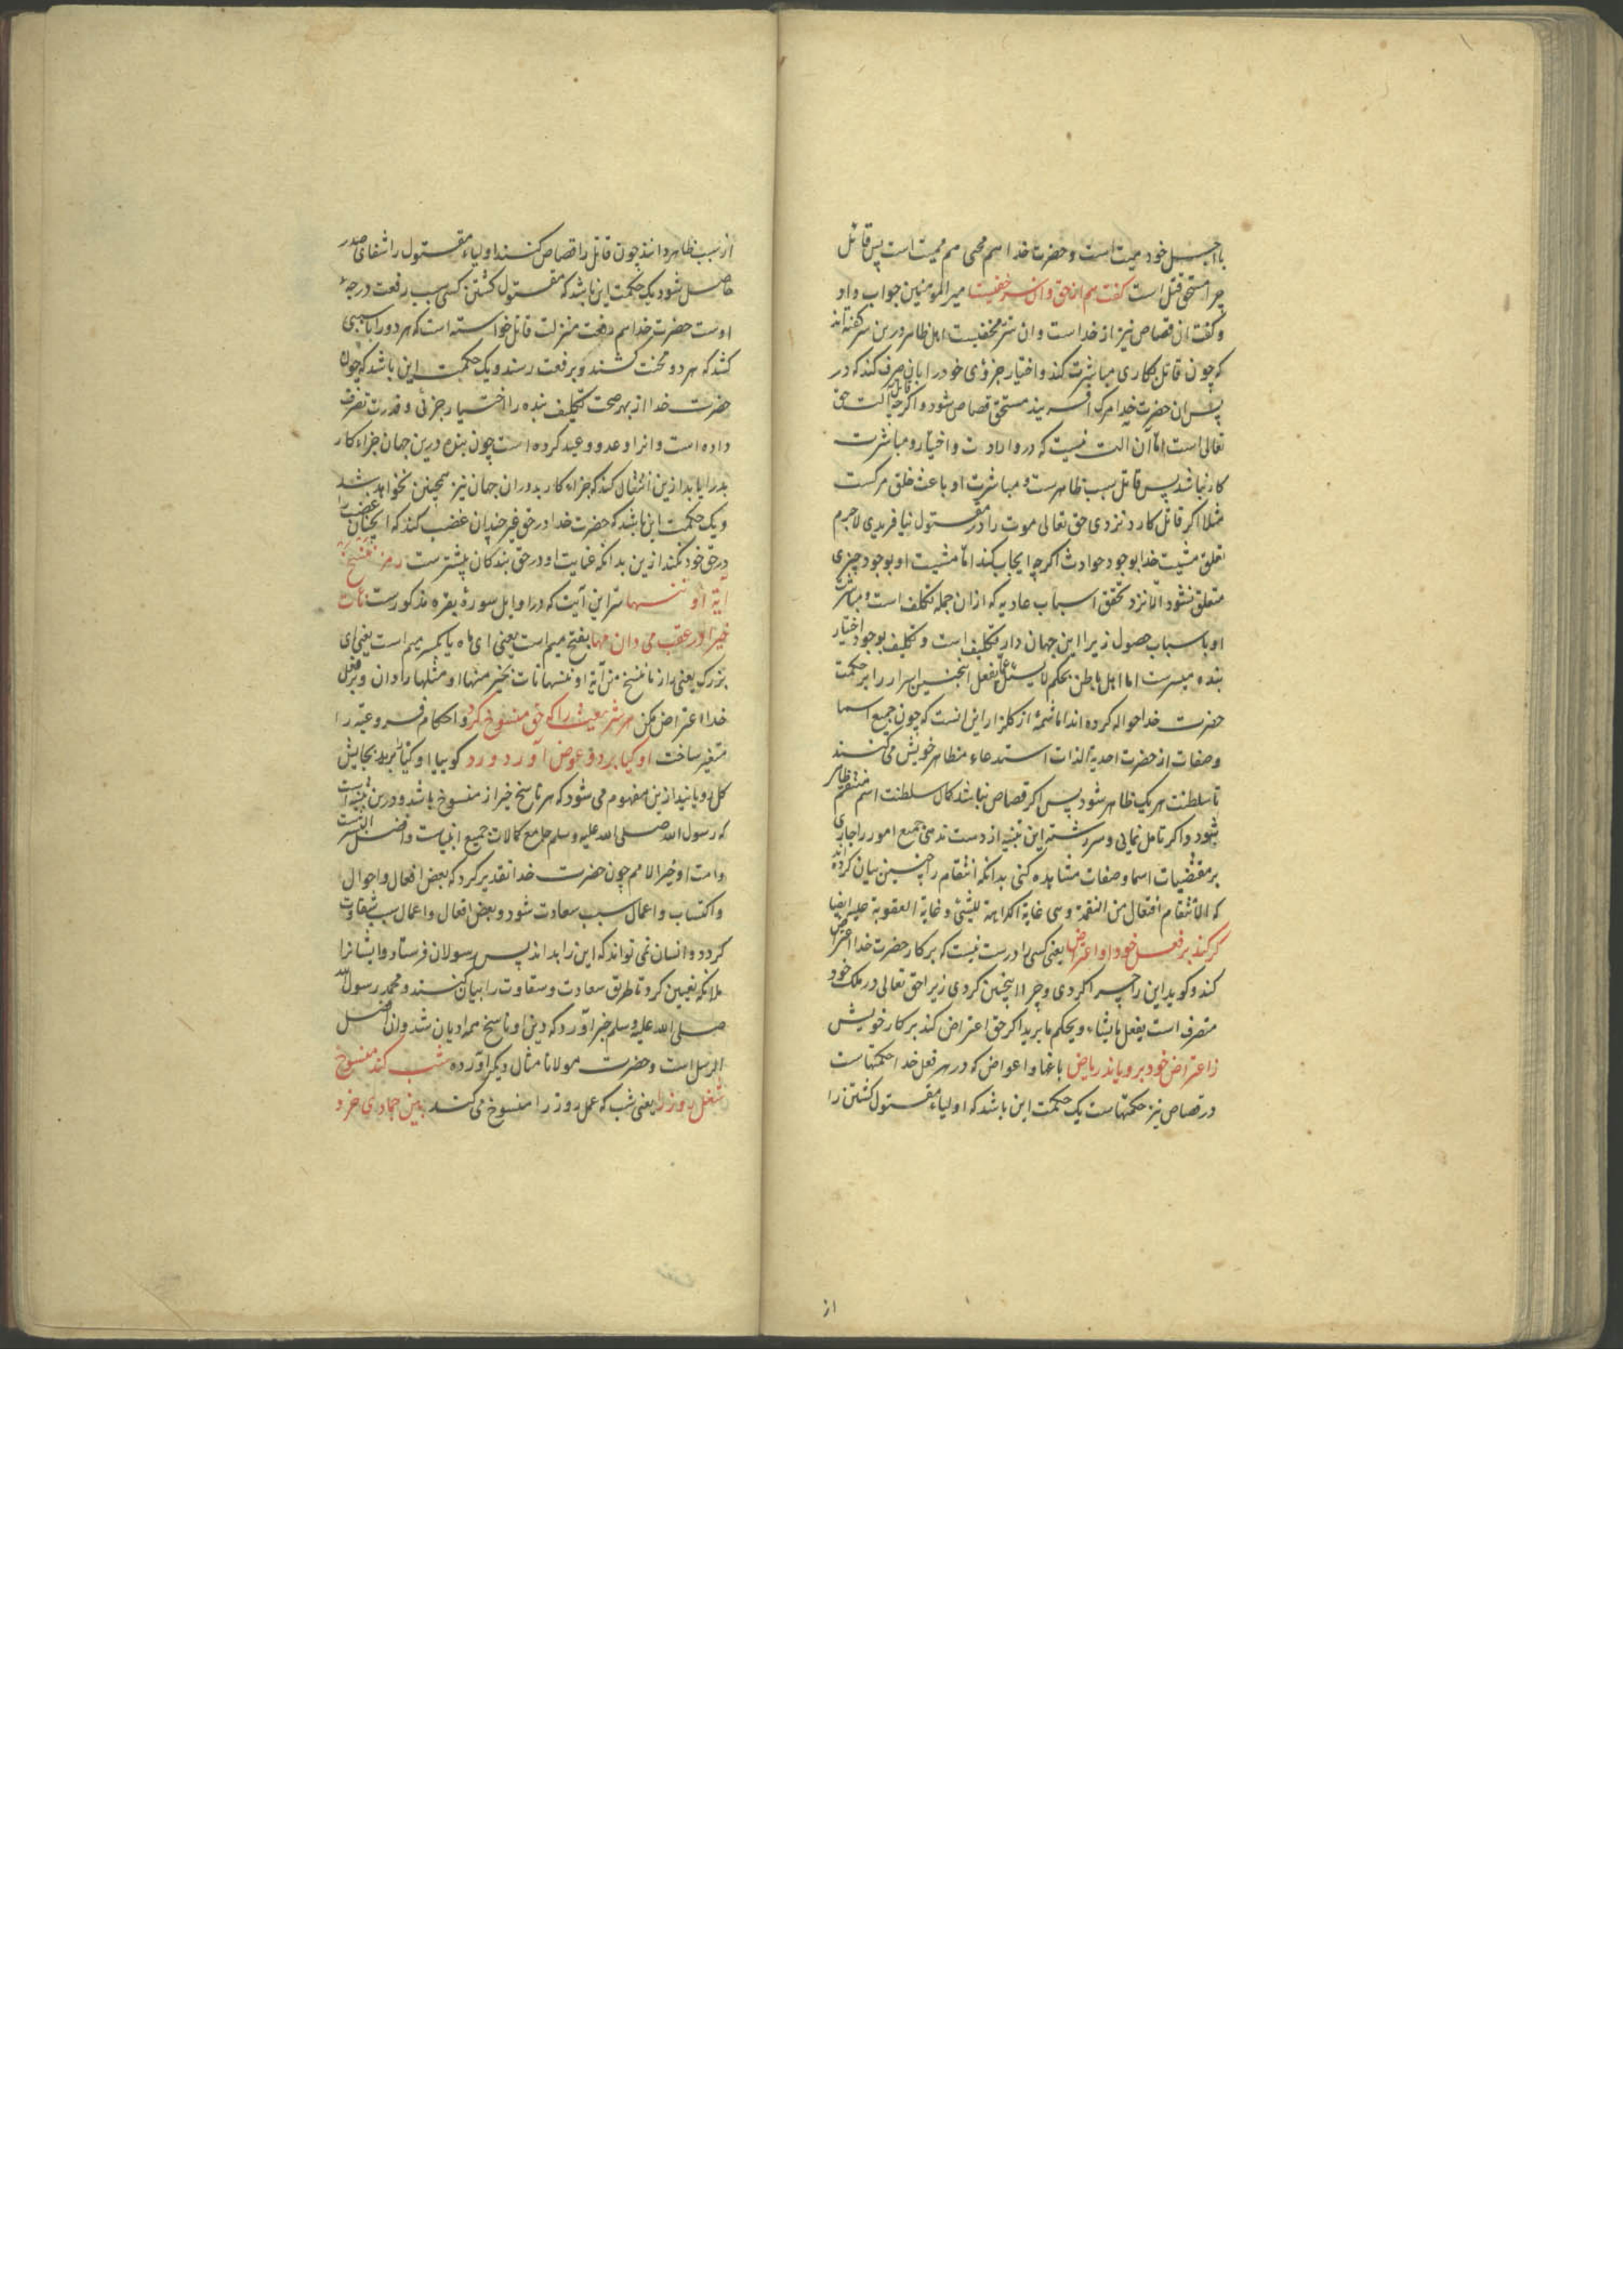 بااجل خود میت است و حضرت خدا هم محی هم ممیت است پس قاتل
چرا مستحق قتل است کفت هم از حق و آن سر خفیست امیرالمومنین جواب داد
و کفت ان قصاص نیز از خداست وان سر مخفیست اهل ظاهر درین سر کفته اند
که چون قاتل بکاری مباشرت کند و اختیار جزؤی خود را بان صرف کند که در
پس ان حضرت خدا مرک افریند مستحق قصاص شود و اکر چه قاتل الت حق
تعالی است اما آن الت نیست که درو ارادت و اختیار و مباشرت
کار نباشد پس قاتل سبب ظاهرست و مباشرت او باعث خلق مرکست
مثلا اکر قاتل کارد نزدی حق تعالی موت را در مقتول نیافریدی لاجرم
تعلق مشیت خدا بوجود حوادث اکرچه ایجاب کند اما مشیت او بوجود چیزی
متعلق نشود الا نزد تحقق اسباب عادیه که ازان جمله تکلف است و مباشرت
او باسباب حصول زیرا این جهان دار تکلیف است و تکلیف بوجود اختیار
بنده میسرست اما اهل باطن بحکم لا یسئل عما یفعل اینچنین اسرار را بر حکمت
حضرت خدا حواله کرده اند اما شمه از کلزار این انست که چون جمیع اسما
و صفات از حضرت احدیة الذات استدعاء مظاهر خویش می کنند
تا سلطنت هر یک ظاهر شود پس اکر قصاص نباشد کمال سلطنت اسم منتقم ظاهر
نشود و اکر تامل نمایی و سر رشته این تنبیه از دست ندهی جمیع امور را جاری
بر مقتضیات اسما و صفات مشاهده کنی بدانکه انتقام را چنین بیان کرده اند
که الانتقام افتعال من النقمة وهی غایة الکراهة للشئ و غایة العقوبة علیه ایضا
کر کند بر فعل خود او اعتراض یعنی کسی را درست نیست که بر کار حضرت خدا اعتراض
کند و کوید این را چرا کردی و چرا اینچنین کردی زیرا حق تعالی در ملک خود
متصرف است یفعل ما یشاء و یحکم ما یرید اکر حق اعتراض کند بر کار خویش
ز اعتراض خود برویاند ریاض باغها و اعواض که در هر فعل خدا حکمتهاست
در قصاص نیز حکمتهاست یک حکمت این باشد که اولیاء مقتول کشتن را
از
از سبب ظاهر دانند چون قاتل را قصاص کنند اولیاء مقتول را شفای صدر
حاصل شود یک حکمت این باشد که مقتول کشتن کسی سبب رفعت درجهٔ
اوست حضرت خدا هم رفعت منزلت قاتل خواسته است که هر دو را بسببی
کشد که هر دو محنت کشند و برفعت رسند و یک حکمت این باشد که چون
حضرت خدا از بهر صحت تکلیف بنده را اختیار جزئی و قدرت تصرف
داده است و انرا وعد و وعید کرده است چون بنده درین جهان جزاء کار
بد را یابد ازین انتقال کند که جزاء کار بد دران جهان نیز همچنین خواهد شد
و یک حکمت این باشد که حضرت خدا در حق غیر چندان غضب کند که آنچنان غضب را
در حق خود نکند ازین بدانکه عنایت او در حق بندکان بیشترست رمز ننسخ
آیة او ننسها سر این آیت که در اوایل سورهٔ بقره مذکورست نأت
خیرا در عقب می دان مها بفتح میم است یعنی ای ماه یا بکسر میم است یعنی ای
بزرک یعنی راز ما ننسخ من آیة او ننسها نأت بخیر منها او مثلها را دان و بر فعل
خدا اعتراض مکن هر شریعت را که حق منسوخ کرد و احکام فروعیه را
متغیر ساخت او کیا برد و عوض آورد ورد کوییا او کیاه برید بجایش
کل رویانید ازین مفهوم می شود که هر ناسخ خیر از منسوخ باشد و درین تنبیه است
که رسول الله صلی الله علیه وسلم جامع کمالات جمیع انبیاست و افضل البشرست
و امت او خیر الامم چون حضرت خدا تقدیر کرد که بعض افعال و احوال
و اکتساب و اعمال سبب سعادت شود و بعض افعال و اعمال سبب شقاوت
کردد و انسان نمی تواند که این را بداند پس رسولان فرستاد و ایشانرا
ملائکه تعیین کرد تا طریق سعادت و شقاوت را بیان کنند و محمد رسول الله
صلی الله علیه وسلم خبر آورد که دین او ناسخ همه ادیان شد و ان افضل
الرسل است و حضرت مولانا مثال دیکر آورده شب کند منسوخ
شغل روز را یعنی شب که عمل روز را منسوخ می کند بین جمادی خرد